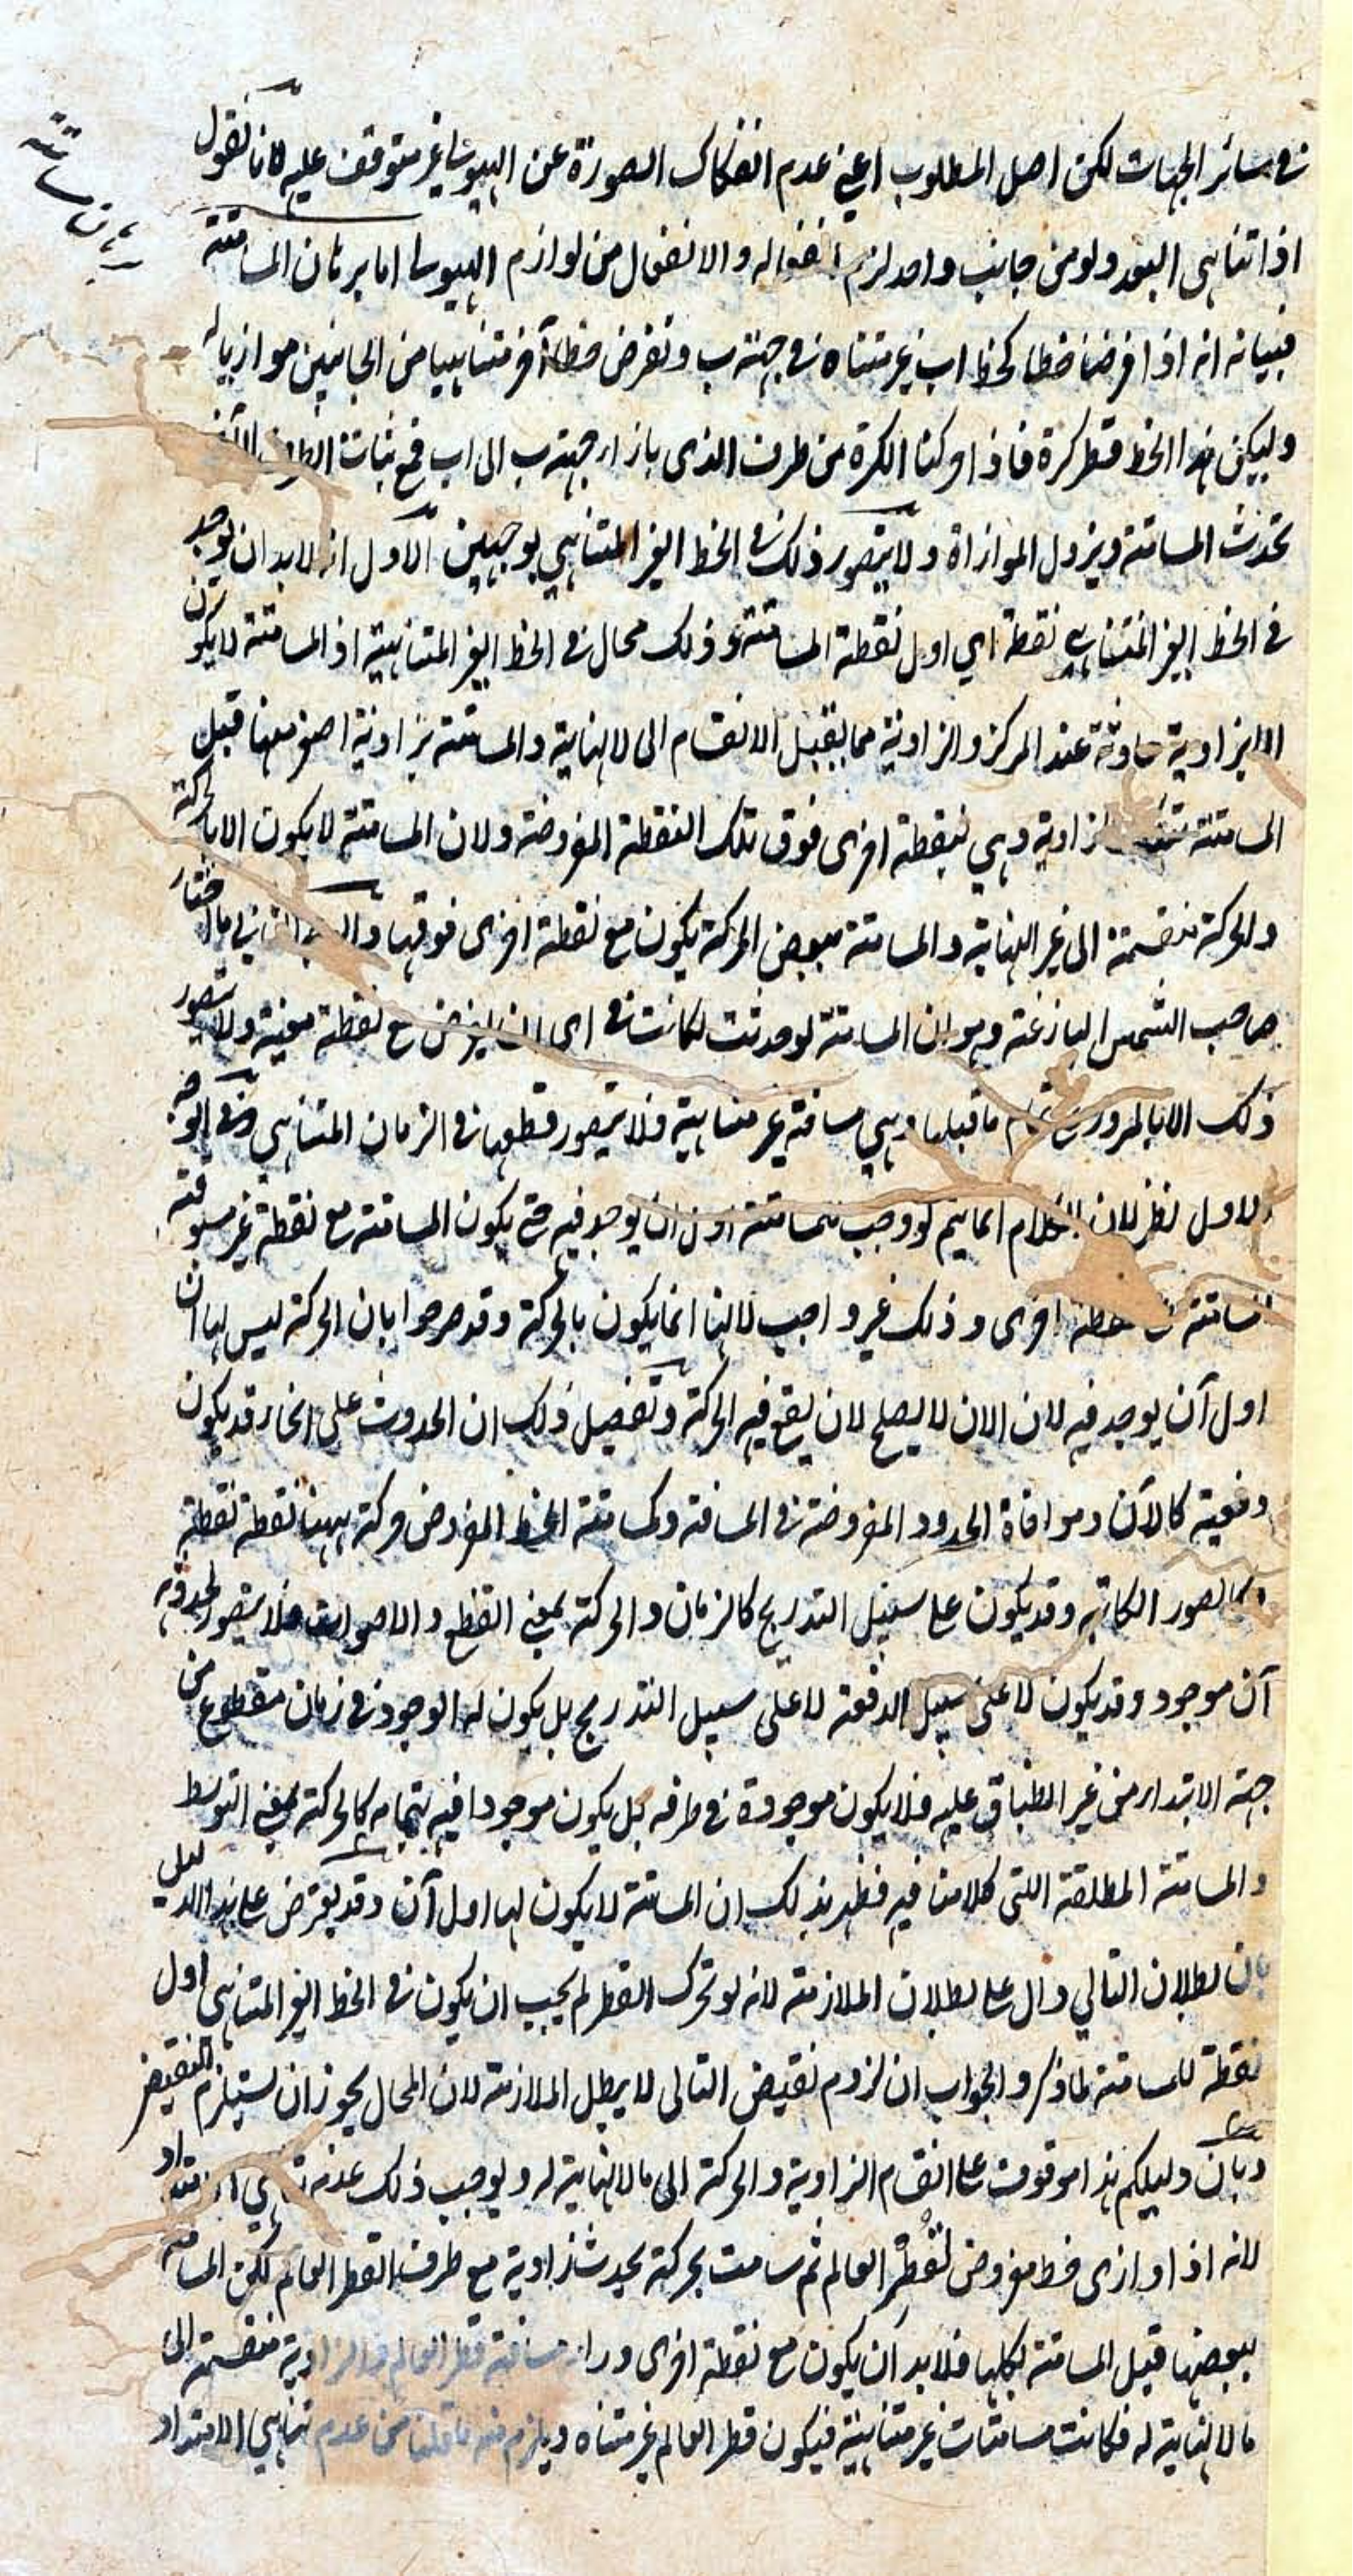 برهان مسامتة
في سائر الجهات لكن اصل المطلوب اعني عدم انفكاك الصورة عن الهيولى غير متوقف عليه لانا نقول
اذا تناهى البعد ولو من جانب واحد لزم انفعاله والانفعال من لوازم الهيولى اما برهان المسامتة
فبيانه انه اذا فرضنا خطا كخط اب غير متناه في جهة ب ونفرض خطا آخر متناهيا من الجانبين موازيا له
وليكن هذا الخط قطر كرة فاذا حركنا الكرة من طرف الذي بازاء جهة ب الى اب فمع ثبات الطرف الآخر
تحدث المسامتة ويزول الموازاة ولا يتصور ذلك في الخط الغير المتناهي بوجهين الاول انه لا بد ان يوجد
في الخط الغير المتناهي نقطة اي اول نقطة المسامتة وذلك محال في الخط الغير المتناهية اذ المسامتة لا يكون
الا بزاوية حادثة عند المركز والزاوية مما يقبل الانقسام الى لا نهاية والمسامتة بزاوية اصغر منها قبل
المسامتة بتلك الزاوية وهي بنقطة اخرى فوق تلك النقطة المفروضة ولان المسامتة لا يكون الا بالحركة
والحركة منقسمة الى غير النهاية والمسامتة ببعض الحركة يكون مع نقطة اخرى فوقها والوجه الثاني ما اختار
صاحب الشمس البازغة وهو ان المسامتة لو حدثت لكانت في اي آن يفرض مع نقطة معينة ولا يتصور
ذلك الا بالمرور على تمام ما قبلها وهي مسافة غير متناهية فلا يتصور قطعها في الزمان المتناهي وفي الوجه
الاول نظر لان الكلام انما يتم لو وجب للمسامتة اول ان يوجد فيه حتى يكون المسامتة مع نقطة غير مسبوقة
المسامتة مع نقطة اخرى وذلك غير واجب لانها انما يكون بالحركة وقد صرحوا بان الحركة ليس لها آن
اول آن يوجد فيه لان الان لا يصلح لان يقع فيه الحركة وتفصيل ذلك ان الحدوث على انحاء قد يكون
دفعية كالآن وموافاة الحدود المفروضة في المسافة وكمسامتة الخط المفروض حركة ههنا نقطة نقطة
وكالصور الكائنة وقد يكون على سبيل التدريج كالزمان والحركة بمعنى القطع والاصوات فلا يتصور لحدوثه
آن موجود وقد يكون لا على سبيل الدفعة لا على سبيل التدريج بل يكون له الوجود في زمان مقطوع من
جهة الابتداء من غير انطباق عليه فلا يكون موجودة في طرفه بل يكون موجودا فيه بتمامه كالحركة بمعنى التوسط
والمسامتة المطلقة اللتى كلامنا فيه فظهر بذلك ان المسامتة لا يكون لها اول آن وقد يعترض على هذا الدليل
بان بطلان التالي دال على بطلان الملازمة لانه لو تحرك القطر لم يجب ان يكون في الخط الغير المتناهي اول
نقطة للمسامتة لما ذكر والجواب ان لزوم نقيض التالى لا يبطل الملازمة لان المحال يجوز ان يستلزم النقيض
وبان دليلكم هذا موقوف على انقسام الزاوية والحركة الى مالا نهاية له ويوجب ذلك عدم تناهي الامتداد
لانه اذا وازى خط مفروض لقطر العالم ثم سامت بحركة يحدث زاوية مع طرف القطر العالم لكن المسامتة
ببعضها قبل المسامتة بكلها فلا بد ان يكون مع نقطة اخرى وراء مسافة قطر العالم والزاوية منقسمة الى
مالا نهاية له فكانت مسامتات غير متناهية فيكون قطر العالم غير متناه ويلزم منه ما قلنا من عدم تناهي الامتداد